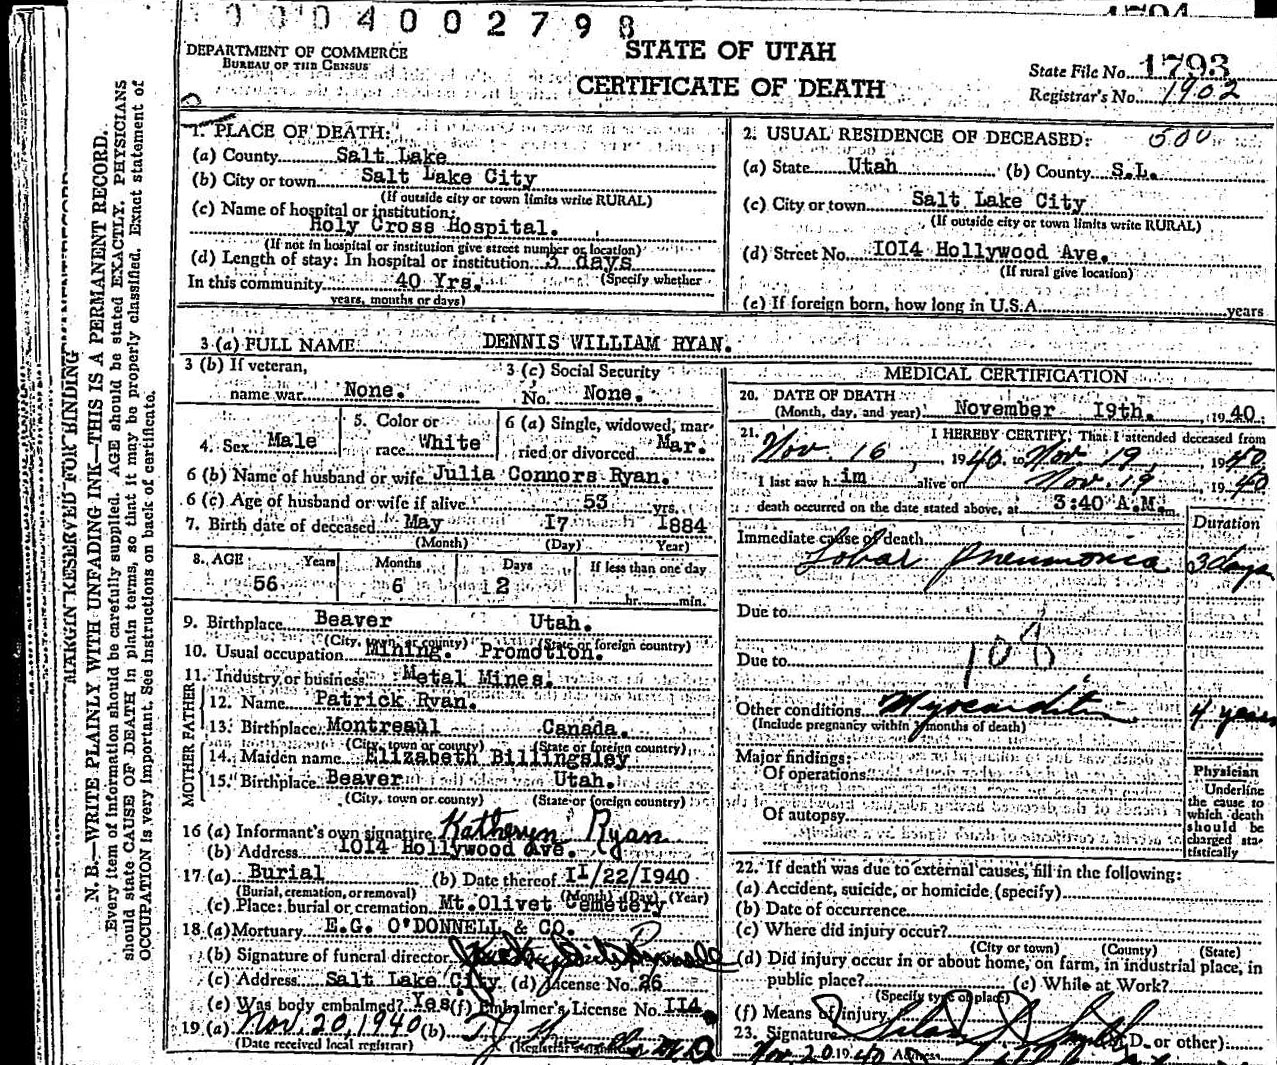 0004002798
DEPARTMENT OF COMMERCE
BUREAU OF THE CENSUS
STATE OF UTAH
CERTIFICATE OF DEATH
State File No. 1793
Registrar's No. 1902
MARGIN RESERVED FOR BINDING
N. B.—WRITE PLAINLY WITH UNFADING INK—THIS IS A PERMANENT RECORD.
Every item of information should be carefully supplied. AGE should be stated EXACTLY. PHYSICIANS
should state CAUSE OF DEATH in plain terms, so that it may be properly classified. Exact statement of
OCCUPATION is very important. See instructions on back of certificate.
1. PLACE OF DEATH:
(a) County Salt Lake
(b) City or town Salt Lake City
(If outside city or town limits write RURAL)
(c) Name of hospital or institution:
Holy Cross Hospital.
(If not in hospital or institution give street number or location)
(d) Length of stay: In hospital or institution 3 days
(Specify whether
In this community 40 Yrs.
years, months or days)
2. USUAL RESIDENCE OF DECEASED: 500
(a) State Utah (b) County S.L.
(c) City or town Salt Lake City
(If outside city or town limits write RURAL)
(d) Street No. 1014 Hollywood Ave.
(If rural give location)
(e) If foreign born, how long in U.S.A. years
3 (a) FULL NAME DENNIS WILLIAM RYAN.
3 (b) If veteran, name war None.
3 (c) Social Security No. None.
4. Sex Male
5. Color or race White
6 (a) Single, widowed, married or divorced Mar.
6 (b) Name of husband or wife Julia Connors Ryan.
6 (c) Age of husband or wife if alive 53 yrs.
7. Birth date of deceased May 17 1884
(Month) (Day) Year)
8. AGE Years Months Days If less than one day
56 6 2 hr. min.
9. Birthplace Beaver Utah.
(City, town, or county) (State or foreign country)
10. Usual occupation Mining. Promotion.
11. Industry or business Metal Mines.
FATHER
12. Name Patrick Ryan.
13. Birthplace Montreaul Canada.
(City, town or county) (State or foreign country)
MOTHER
14. Maiden name Elizabeth Billingsley
15. Birthplace Beaver Utah.
(City, town or county) (State or foreign country)
16 (a) Informant's own signature Katheryn Ryan
(b) Address 1014 Hollywood Ave.
17 (a) Burial (b) Date thereof 11/22/1940
(Burial, cremation, or removal) (Month) (Day) (Year)
(c) Place: burial or cremation Mt.Olivet Cemetery
18 (a) Mortuary E.G. O'DONNELL & CO.
(b) Signature of funeral director
(c) Address Salt Lake City (d) License No. 26
(e) Was body embalmed? Yes (f) Embalmer's License No. 114
19 (a) Nov. 20, 1940 (b)
(Date received local registrar) (Registrar's signature)
MEDICAL CERTIFICATION
20. DATE OF DEATH
(Month, day, and year) November 19th. 1940.
21. I HEREBY CERTIFY, That I attended deceased from
Nov. 16, 1940 to Nov. 19, 1940
I last saw h im alive on Nov. 19 1940
death occurred on the date stated above, at 3:40 A.M. m.
Duration
Immediate cause of death
Lobar pneumonia 3 days
Due to
108
Due to
Other conditions Myocarditis 4 years
(Include pregnancy within 3 months of death)
Major findings:
Of operations
Of autopsy
Physician
Underline
the cause to
which death
should be
charged sta-
tistically
22. If death was due to external causes, fill in the following:
(a) Accident, suicide, or homicide (specify)
(b) Date of occurrence
(c) Where did injury occur?
(City or town) (County) (State)
(d) Did injury occur in or about home, on farm, in industrial place, in
public place? (e) While at Work?
(Specify type of place)
(f) Means of injury
23. Signature (M.D. or other)
Nov. 20 1940 Address